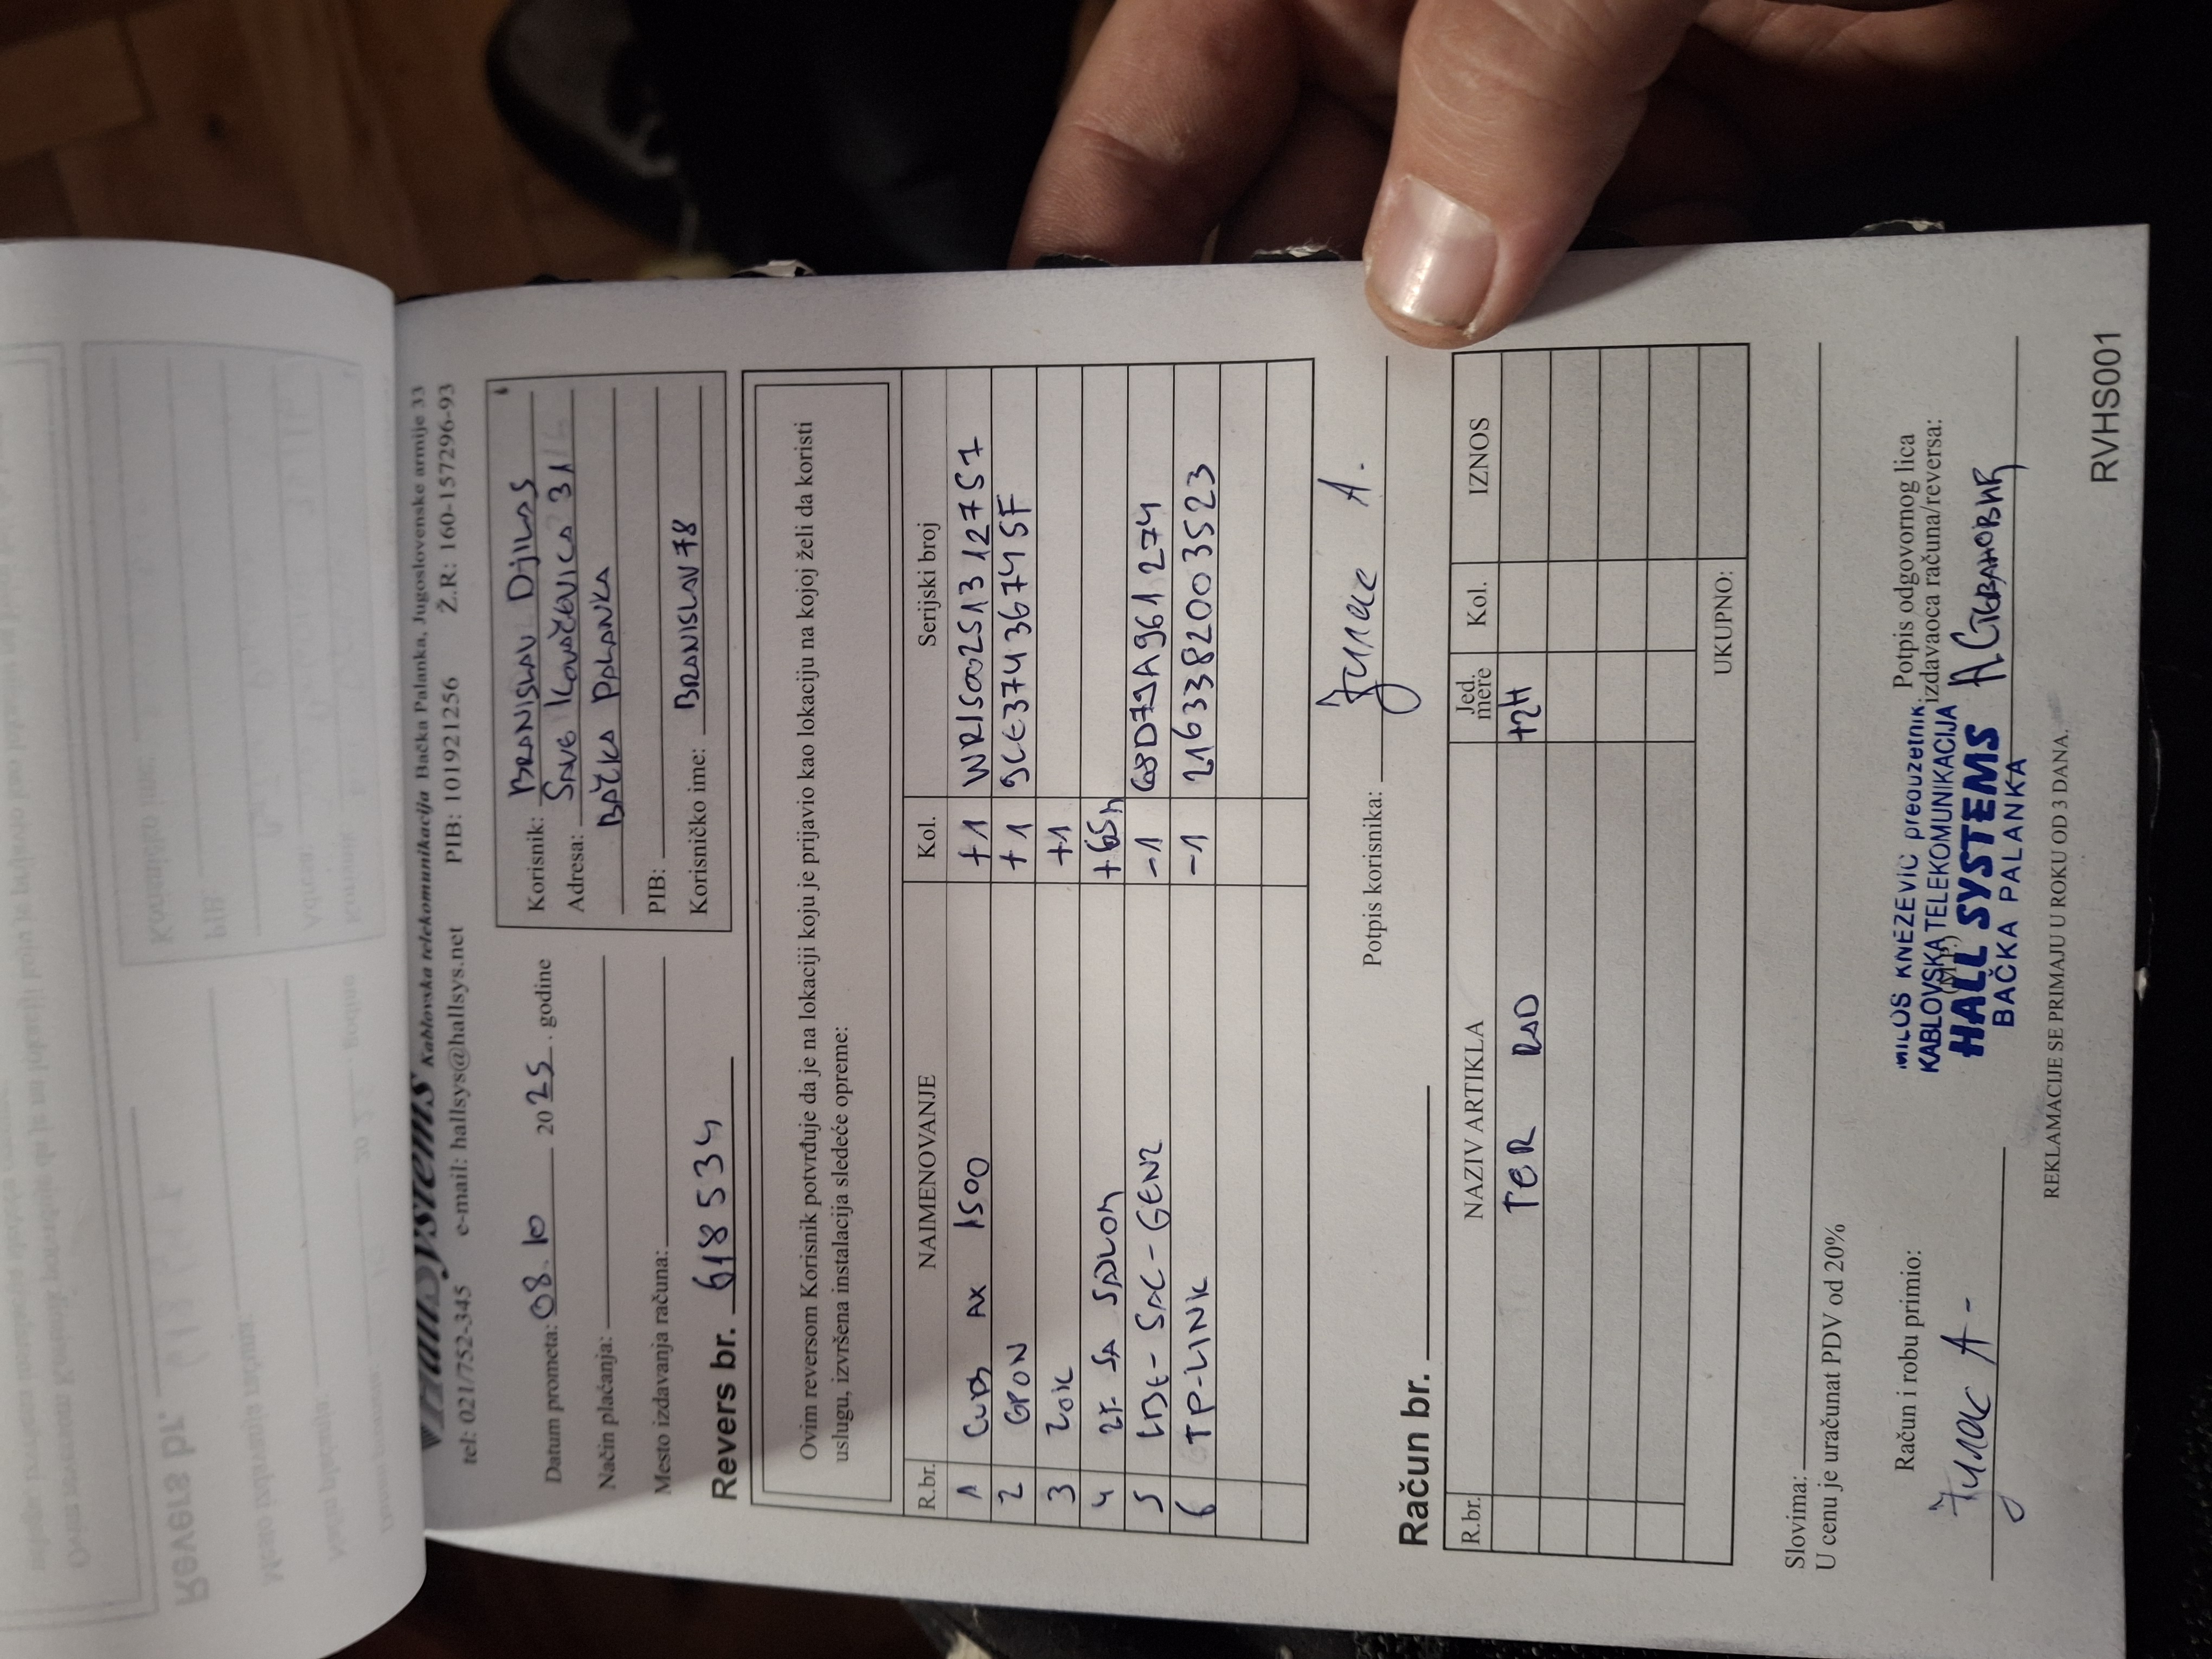 HallSystems Kablovska telekomunikacija Bačka Palanka, Jugoslovenske armije 33
tel: 021/752-345 e-mail: hallsys@hallsys.net PIB: 101921256 Ž.R: 160-157296-93
Datum prometa: 08.10 2025. godine
Način plaćanja:
Mesto izdavanja računa:
Revers br. 618534
Korisnik: BRANISLAV DjILAS
Adresa: SAVE KOVAČEVICA 31
BAČKA PALANKA
PIB:
Korisničko ime: BRANISLAV78
Ovim reversom Korisnik potvrđuje da je na lokaciji koju je prijavio kao lokaciju na kojoj želi da koristi
uslugu, izvršena instalacija sledeće opreme:
R.br. NAIMENOVANJE Kol. Serijski broj
1 CUDY AX 1500 +1 WR1500251312757
2 GPON +1
3 ZOK +1
4 2F SA SAJLOM +65m
5 LBE-5AC-GEN2 -1 68D79A961274
6 TP-LINK -1 2163382003523
Potpis korisnika: Ђилас А.
Račun br.
R.br. NAZIV ARTIKLA Jed. mere Kol. IZNOS
TER RAD +2H
UKUPNO:
Slovima:
U cenu je uračunat PDV od 20%
Račun i robu primio:
Ђилас А-
MILOŠ KNEŽEVIĆ preduzetnik
KABLOVSKA TELEKOMUNIKACIJA
(M.P.)
HALL SYSTEMS
BAČKA PALANKA
Potpis odgovornog lica
izdavaoca računa/reversa:
REKLAMACIJE SE PRIMAJU U ROKU OD 3 DANA.
RVHS001